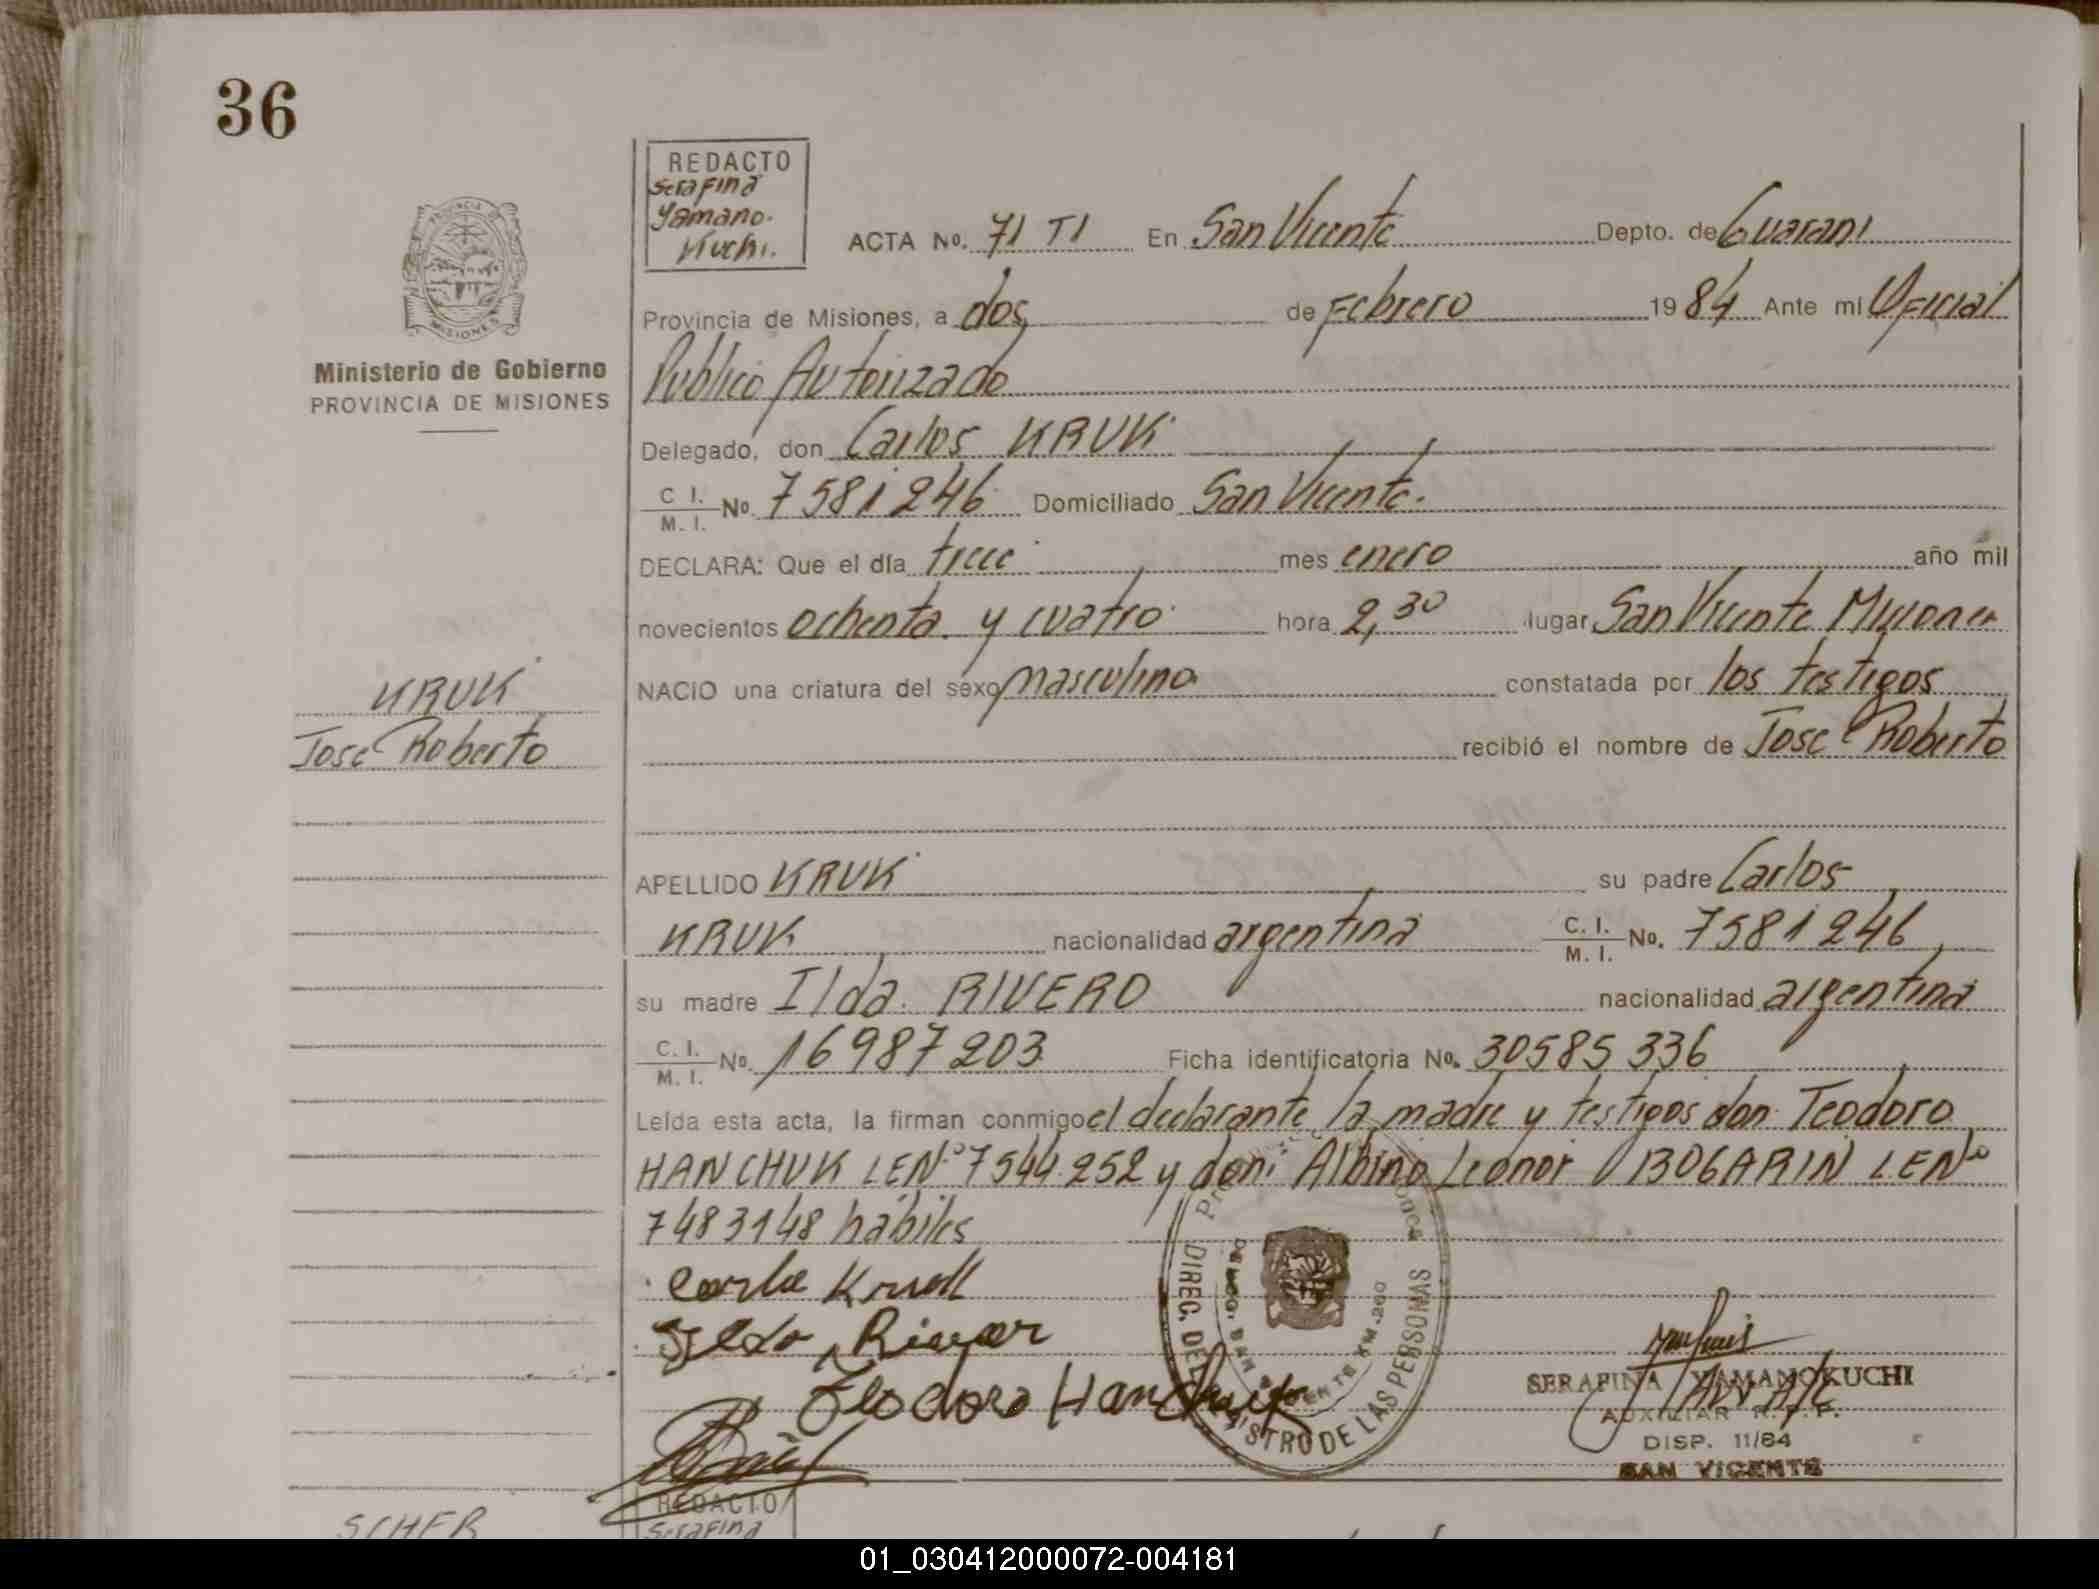 36
REDACTO
Serafina
Yamano-
Kuchi.
PROVINCIA DE
MISIONES
Ministerio de Gobierno
PROVINCIA DE MISIONES
ACTA No. 71 TI En San Vicente Depto. de Guarani
Provincia de Misiones, a dos de Febrero 1984 Ante mi Oficial
Publico Autorizado
Delegado, don Carlos KRUK
C I. / M. I. No. 7581246 Domiciliado San Vicente.
DECLARA: Que el día trece mes enero año mil
novecientos ochenta y cuatro hora 2,30 lugar San Vicente Misiones
NACIO una criatura del sexo masculino constatada por los testigos
KRUK
Jose Roberto
recibió el nombre de Jose Roberto
APELLIDO KRUK su padre Carlos
KRUK nacionalidad argentina C. I. / M. I. No. 7581246
su madre Ilda RIVERO nacionalidad argentina
C. I. / M. I. No. 16987203 Ficha identificatoria No. 30585336
Leída esta acta, la firman conmigo el declarante, la madre y testigos don Teodoro
HANCHUK LE Nº 7544252 y don: Albino Leonor BOGARIN LE Nº
7483148 habiles
Carlo Kruk
Ilda River
Teodoro Hanchuk
DIREC. DEL REGISTRO DE LAS PERSONAS
SERAFINA YAMANOKUCHI
AUXILIAR R.P.P.
DISP. 11/84
SAN VICENTE
REDACTO
Serafina
SCHER
01_030412000072-004181